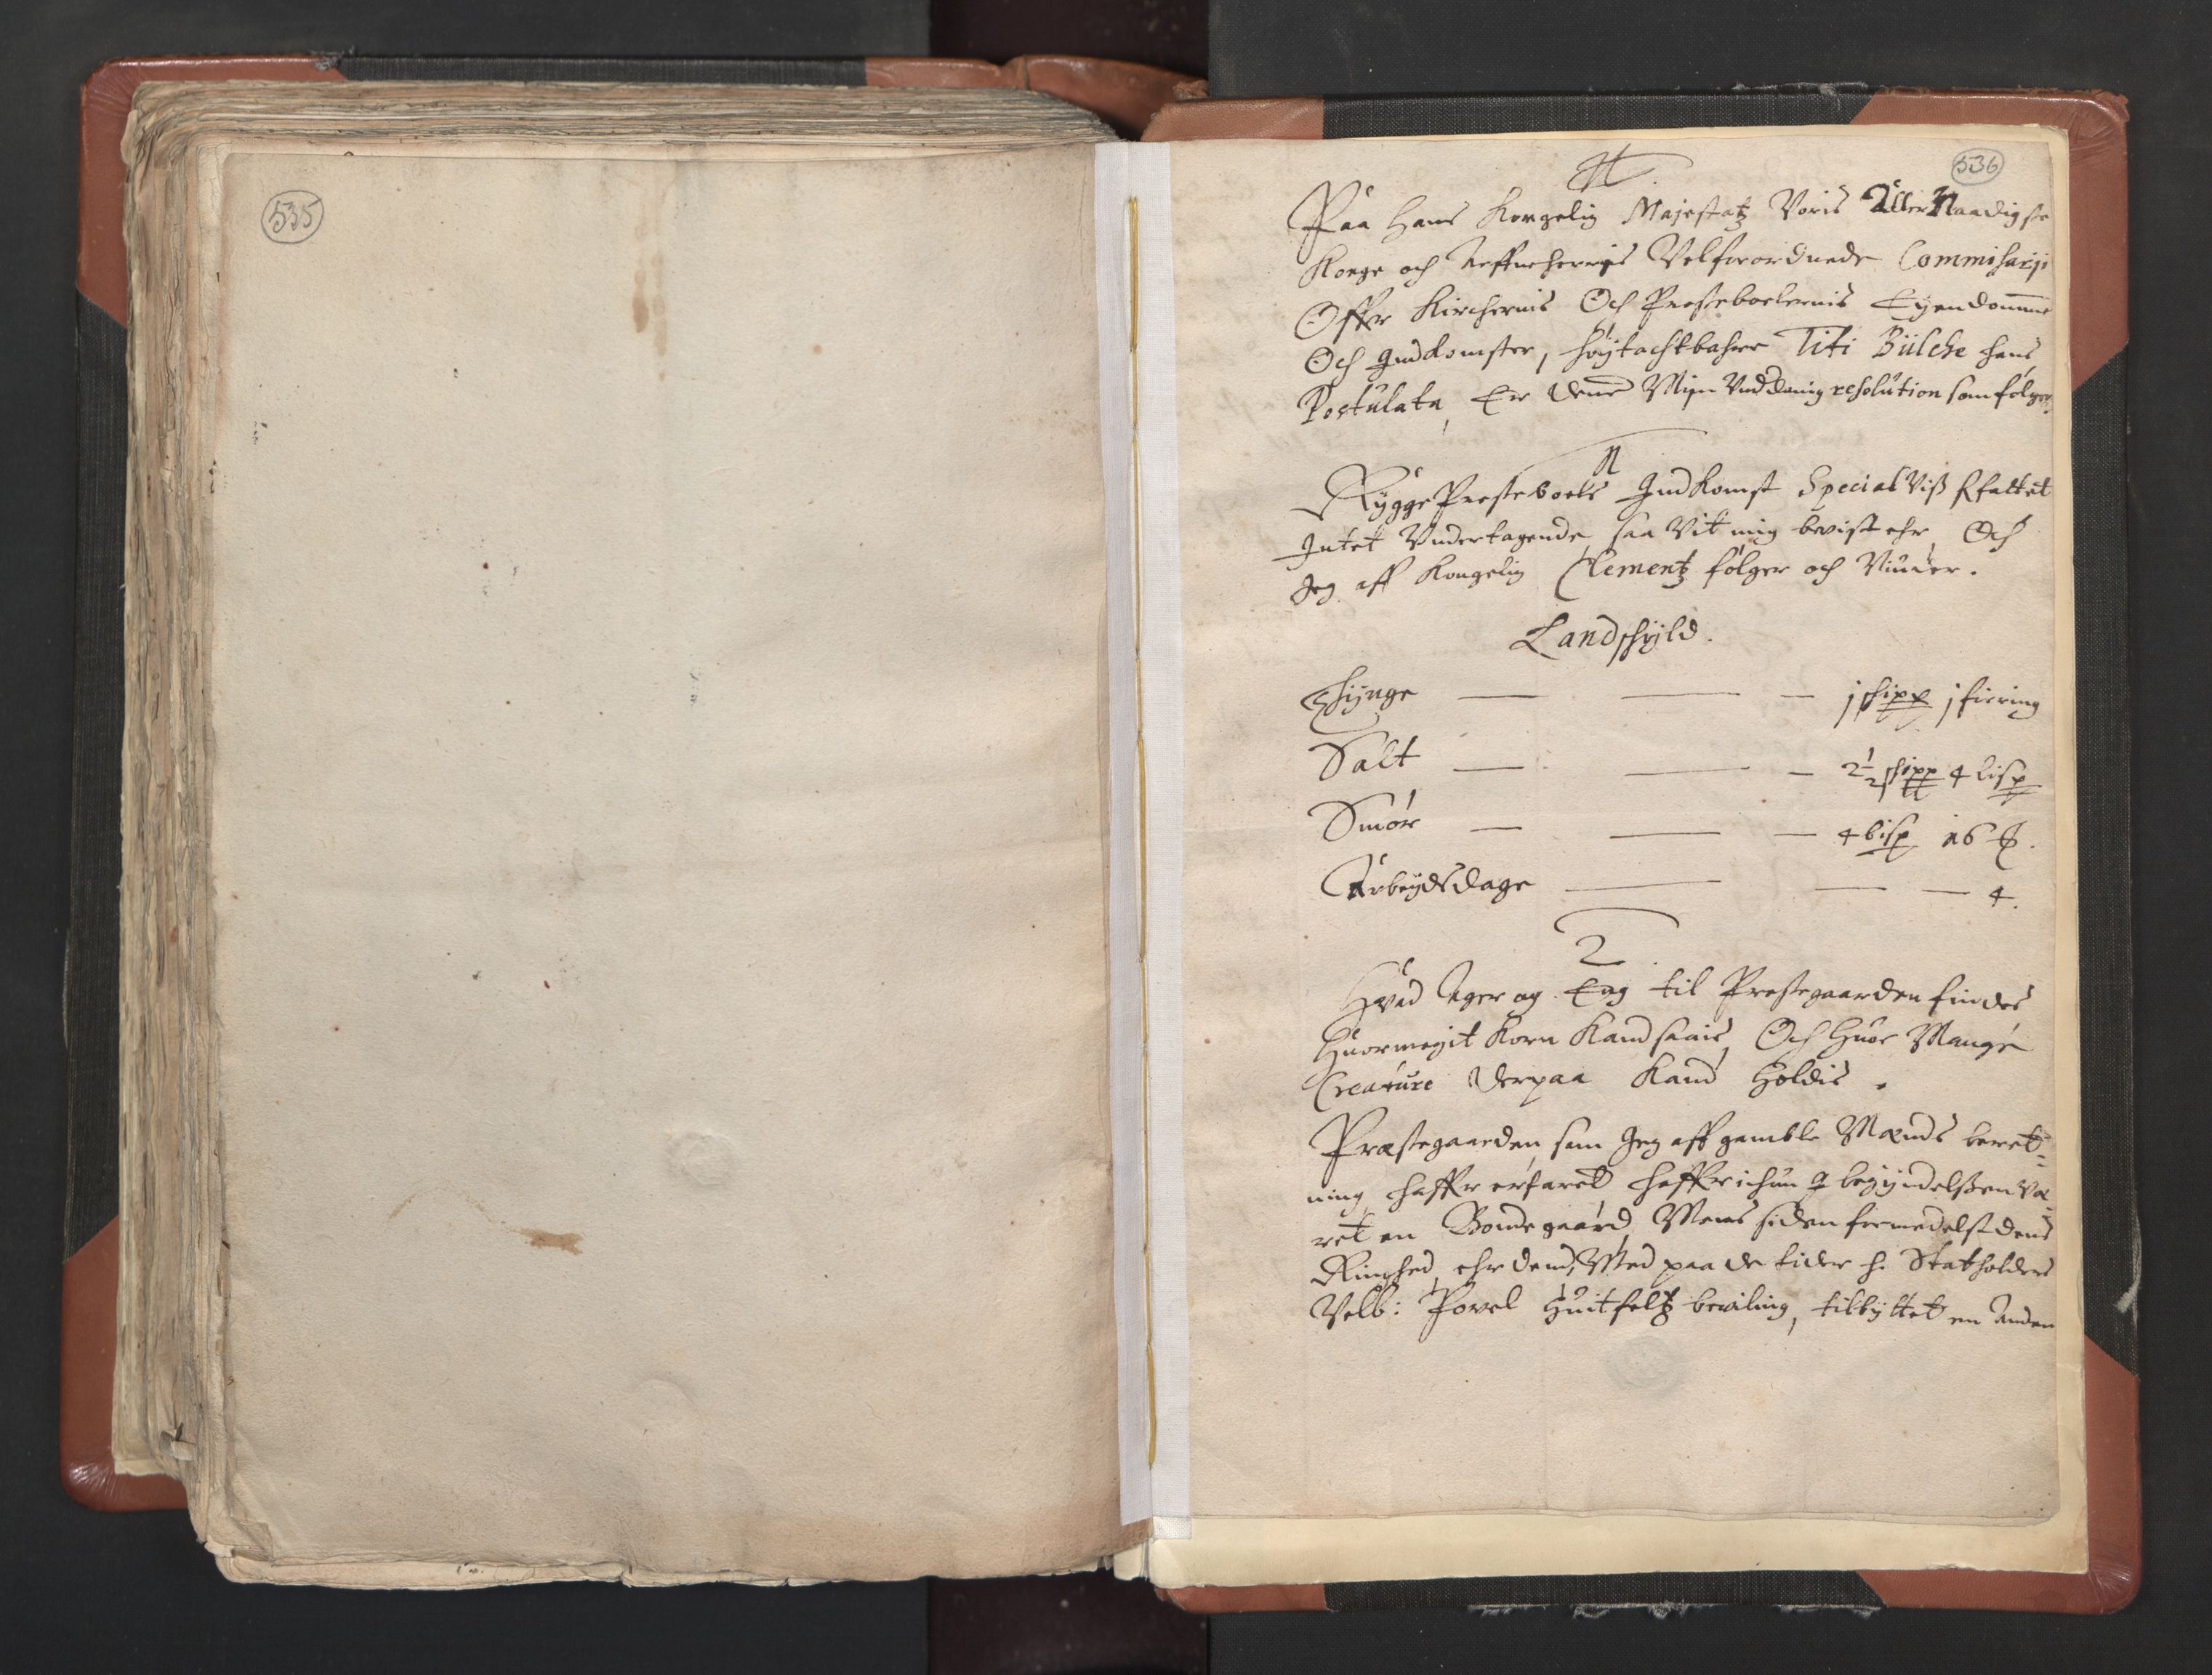 535
536
Paa Hans Kongelig Majestatz Voris Aller Naadigste
Konge och Arffueherris Velforordnede Commisarji
Offr Kirchernis Och Presteboelernis Eyendomme
Och Indkomster, Høytachtbahre Titi Bülche hans
Postulata, Er denne Min Vnddanig resolution som følger.
Rygge Presteboels Indkomst Special Viß
Intet Vndertagende, saa Vit mig bevist ehr, Och
Jeg aff Kongelig Clementz følger och Niuder.
Landschyld.
Thynge — — — j schipp j fiering
Salt — — — 2½ schipp 4 lisp
Smør — — — 4 bisp 16
Arbeydsdage — — — 4.
2
Hvad Ager og Eng til Prestegaarden findes
Huormegit Korn Kand saais, Och Huor Mange
Creature derpaa Kand Holdis.
Præstegaarden, som Jeg aff gamble Mænds beret=
ning haffr erfaret haffr ichun i begyndelßen væ=
ret en Bondegaard, Mens siden formedelst dens
Ringhed, ehr dend, Med paa de tider h. Statholders
Velb: Povel Huitfeltz beviling, tilbyttet en Anden